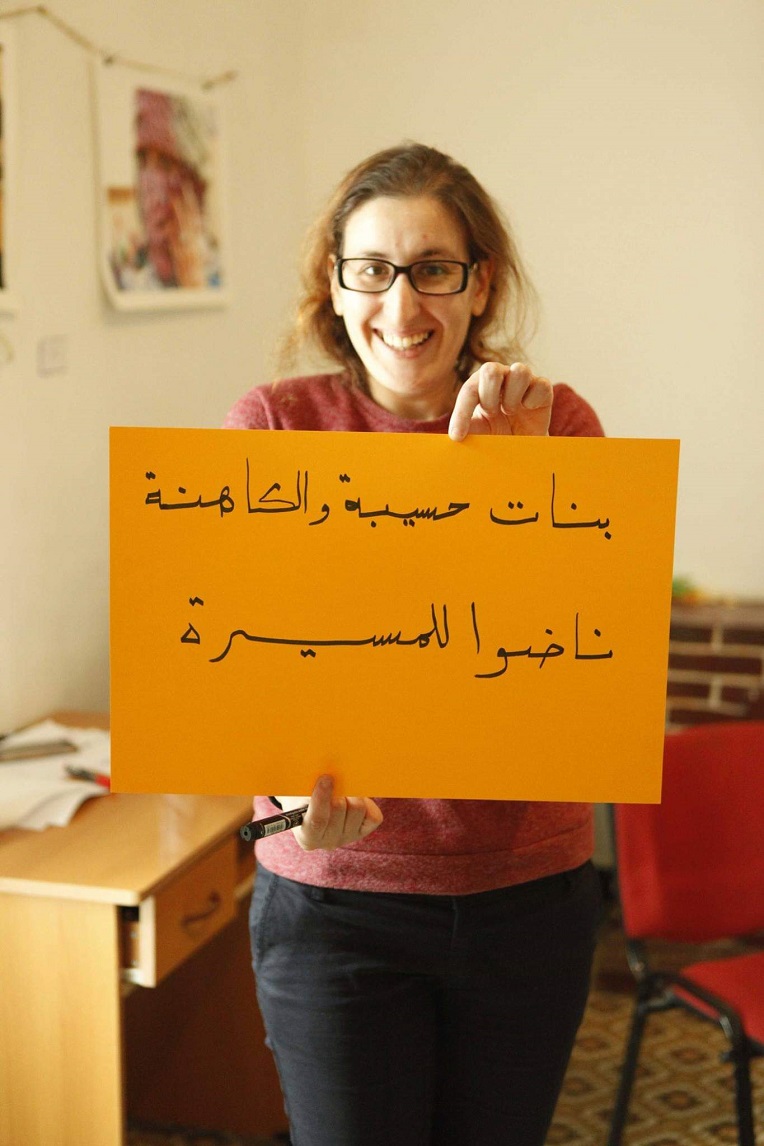 بنات حسيبة والكاهنة
ناضوا للمسيرة